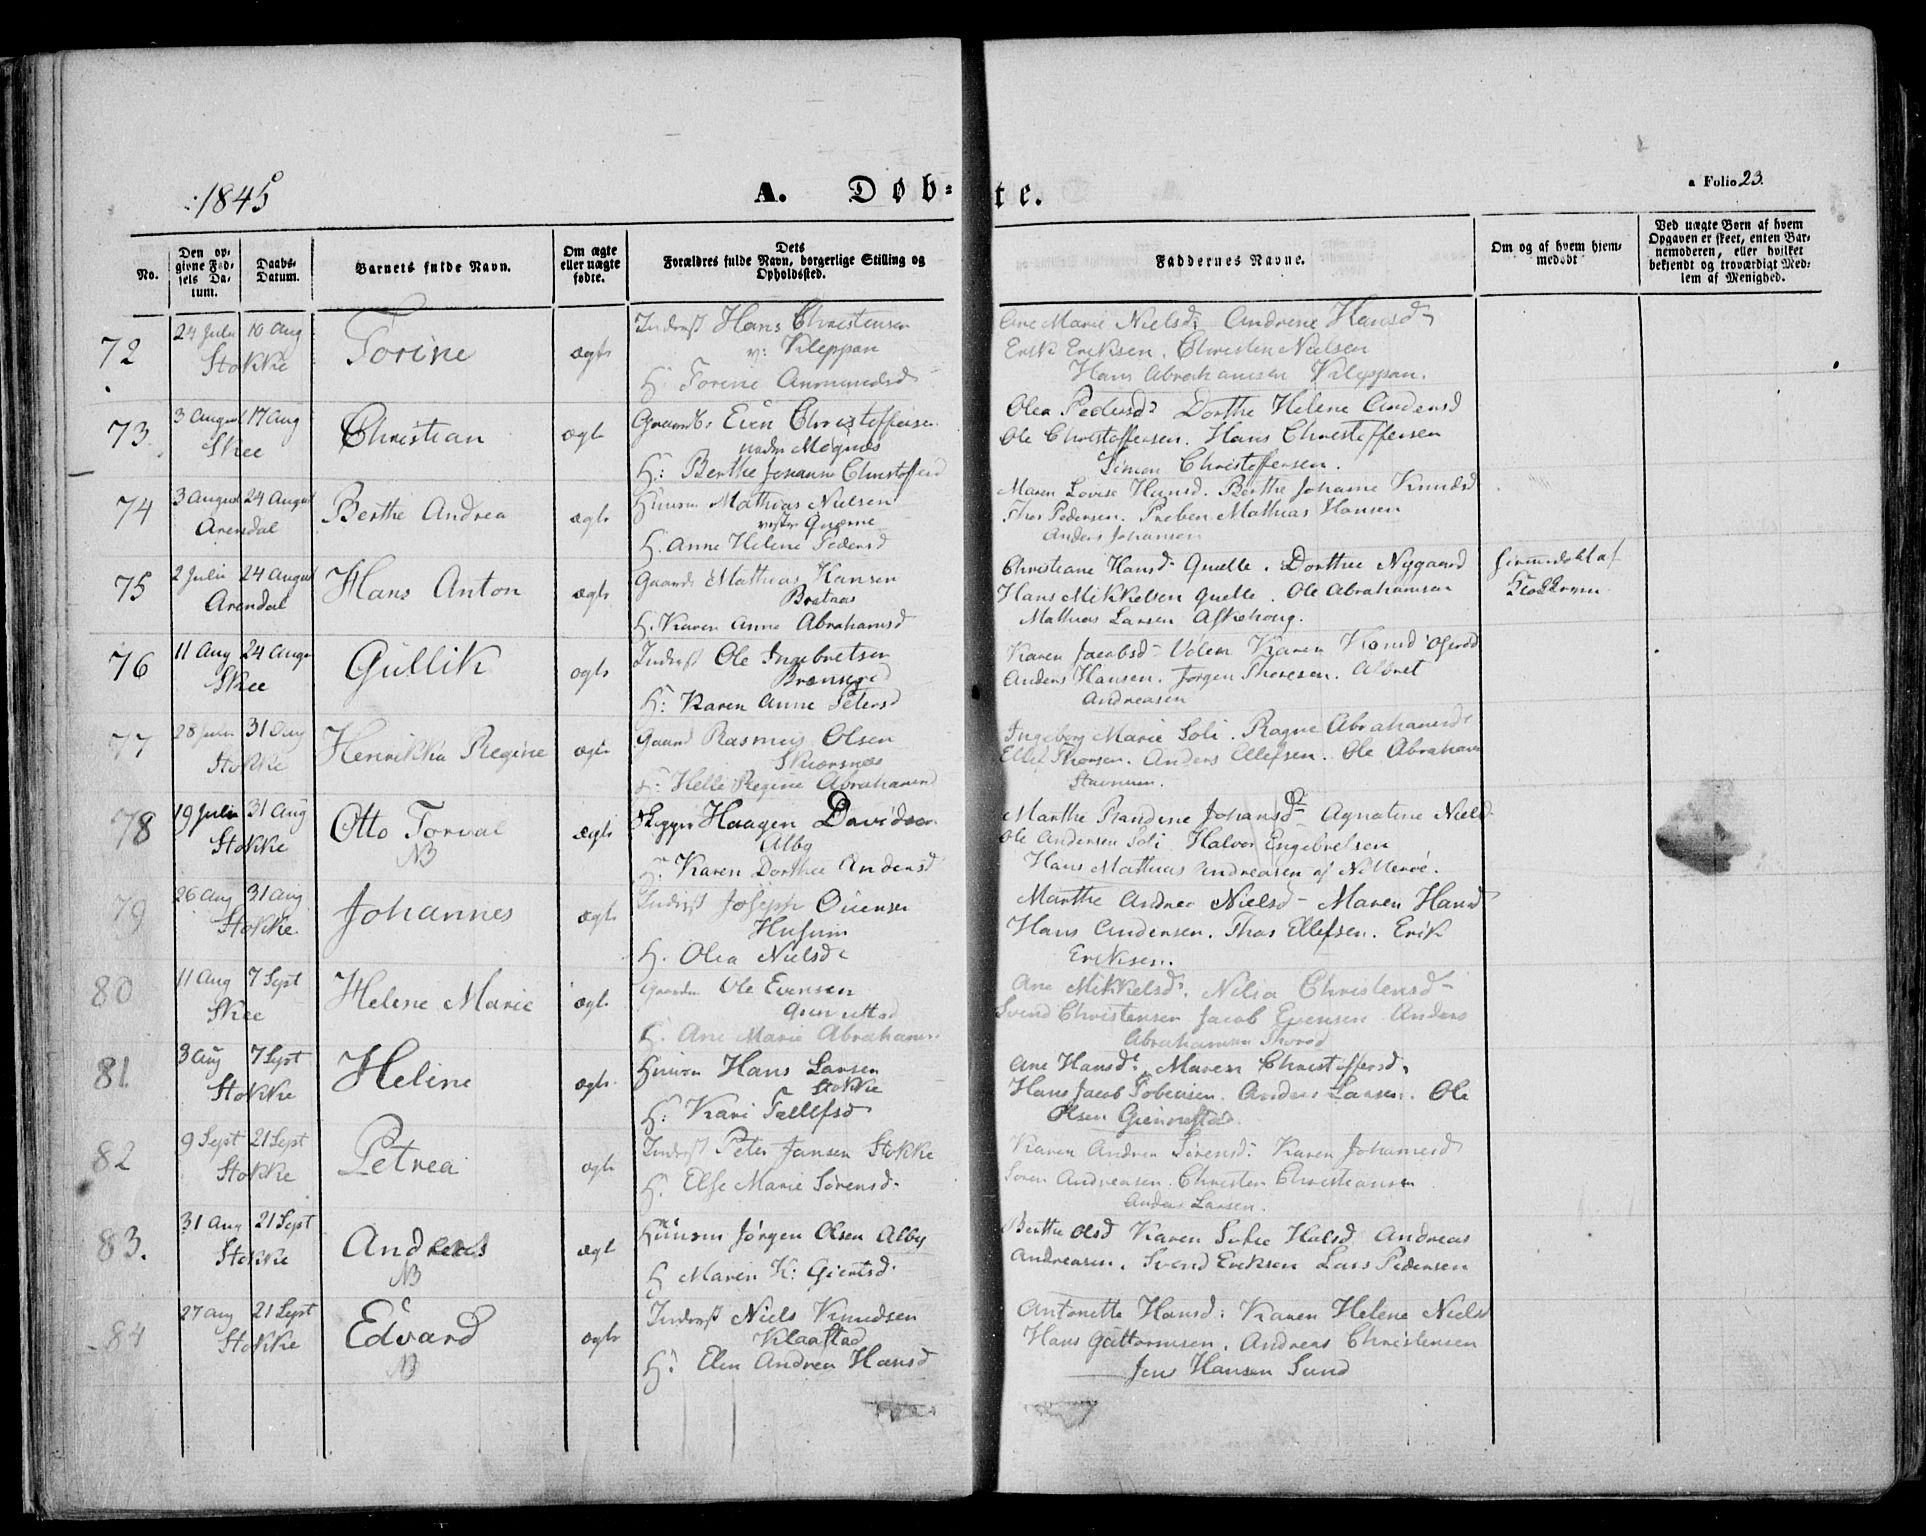 :1845
A. Døb=
te.
a Folio 23.
No.
Den op-
givne Fød-
sels Da-
tum.
Daabs-
Datum.
Barnets fulde Navn.
Om ægte
eller uægte
fødte.
Dets
Forældres fulde Navn, borgerlige Stilling og
Opholdssted.
Faddernes Navne.
Om og af hvem hjem-
medøbt
Ved uægte Børn af hvem
Opgaven er skeet, enten Bar-
nemoderen, eller hvilket
bekjendt og troværdigt Med-
lem af Menighed.
72
24 Julii 10 Aug
Stokke
Torine
ægte
Inderst Hans Christensen
v: Kleppan
H. Torine Anmundsd
Ane Marie Nielsd: Andrene Hansd
Erik Eriksen. Christen Nielsen
Hans Abrahamsen Kleppan.
73
3 August 17 Aug
Skee
Christian
ægte
Gaardb: Even Christoffersen
neden Møgnes
H: Berthe Johanne Christoffersd
Olea Pedersd: Dorthe Helene Andersd
Ole Christoffersen. Hans Christoffersen
Simon Christoffersen.
74
3 August 24 August
Arendal
Berthe Andrea
ægte
Huusm Mathias Nielsen
vestre
H. Anne Helene Pedersd
Maren Lovise Hansd. Berthe Johanne Knudsd
Thor Pedersen. Preben Mathias Hansen
Anders Johansen
75
2 Julii 24 August
Arendal
Hans Anton
ægte
Gaardb Mathias Hansen
Brataas
H. Karen Anne Abrahamsd
Christiane Hansd Quelle. Dorthe Nygaard
Hans Mikkelsen Quelle. Ole Abrahamsen
Mathias Larsen Askehoug.
hjemmedøbt af
76
11 Aug 24 Aug
Skee
Gullik
ægte
Inderst Ole Ingebretsen
H: Karen Anne Petersd
Karen Jacobsd Valem Karen Hansd
Anders Hansen. Jørgen Thoresen. Albret
Andreasen
77
28 Julii 31 Aug
Stokke
Henrikka Regine
ægte
Gaard Rasmus Olsen
Skiærsnæs
H: Helle Regine Abrahamsd
Ingeborg Marie Soli. Ragne Abrahamsd
Ellef Thorsen. Anders Ellefsen. Ole Abraham
Stavnum.
78
19 Julii 31 Aug
Stokke
Otto Torval
NB
ægte
Skipper Haagen Davidsen
Alby
H. Karen Dorthea Andersd
Marthe Randine Johansd Agnatine Nielsd
Ole Andersen Soli Halvor Engebretsen
Hans Mathias Andreasen af Nøtterøe.
79
26 Aug 31 Aug
Stokke
Johannes
ægte
Inderst Joseph Ouensen
Husum
H. Olea Nielsd
Marthe Andrea Nielsd - Maren Hansd
Hans Andersen. Thor Ellefsen. Erik
Eriksen.
80
11 Aug 7 Sept
Skee
Helene Marie
ægte
Gaardm Ole Evensen
H. Ane Marie Abrahams
Ane Mikkelsd: Nilia Christensd
Svend Christensen Jacob Evensen Anders
Abrahamsen
81
3 Aug 7 Sept
Stokke
Heline
ægte
Huusm Hans Larsen
Stokke
H: Kari Tallefsd
Ane Hansd: Maren Christoffersd.
Hans Jacob Tobiasen. Anders Larsen. Ole
Olsen Giennestad.
82
9 Sept 21 Sept
Stokke
Petrea
ægte
Inderst Peter Jansen Stokke
H. Else Marie Sørensd.
Karen Andrea Sørensd: Karen Johannesd
Søren Andreasen. Christen Christiansen
Anders Larsen.
83.
31 Aug 21 Sept
Stokke
Andreas
NB
ægte
Huusm Jørgen Olsen Alby
H Maren K: Giertsd.
Berthe Olsd Karen Sofie Halsd Andreas
Andreasen. Svend Eriksen Lars Pedersen
84
27 Aug 21 Sept
Stokke
Edvard
NB
ægte
Inderst Niels Knudsen
Klaastad
H: Elen Andrea Hansd
Antonette Hansd: Karen Helene Niels
Hans Guttormsen. Andreas Christensen
Jens Hansen Sund